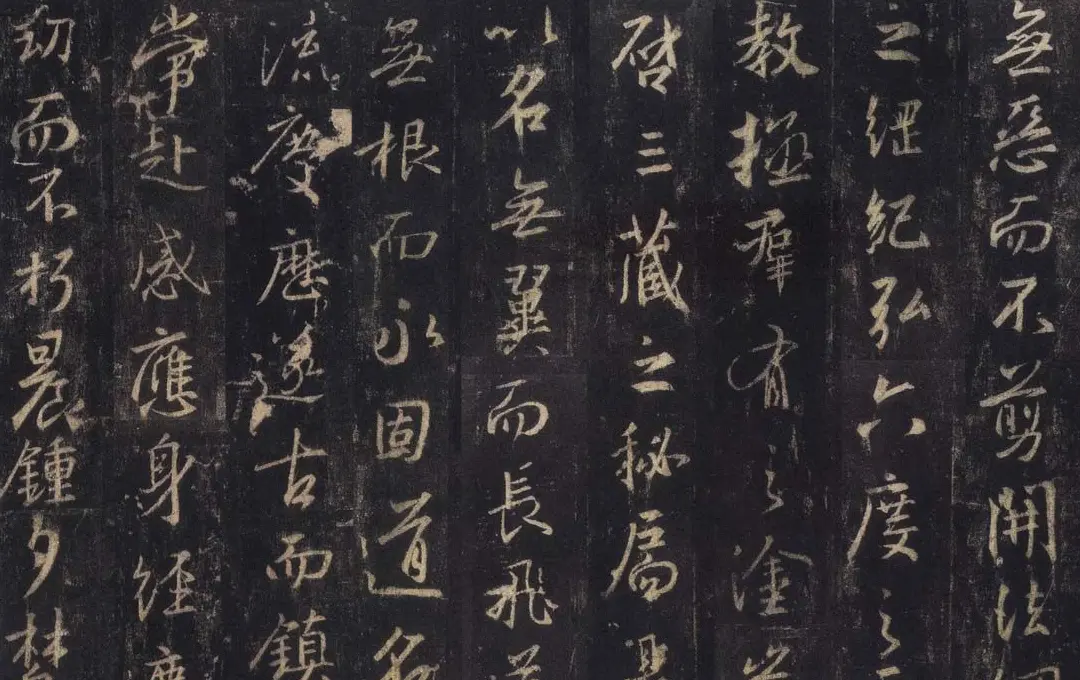 無惡而不剪開法網
之綱紀弘六度之
教拯羣有之塗炭
啓三藏之秘扃是
以名無翼而長飛道
無根而永固道名
流慶歷遂古而鎮
常赴感應身經塵
劫而不朽晨鍾夕梵